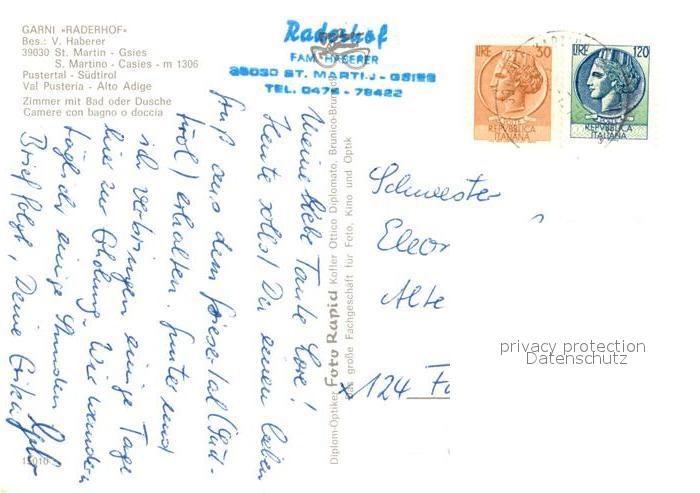 GARNI »RADERHOF«
Bes.: V. Haberer
39030 St. Martin - Gsies
S. Martino - Casies - m 1306
Pustertal - Südtirol
Val Pusteria - Alto Adige
Zimmer mit Bad oder Dusche
Camere con bagno o doccia
Raderhof
FAM. HABERER
39030 ST. MARTIN - GSIES
TEL. 0474 - 78422
LIRE 30
POSTE
REPVBBLICA
ITALIANA
LIRE 120
POSTE
REPVBBLICA
ITALIANA
Meine liebe Tante Lore!
Heute sollst Du einen lieben
Gruß aus dem Gsiesertal (Süd-
tirol) erhalten. Gunter und
ich verbringen einige Tage
hier zur Erholung. Wir wandern
täglich einige Stunden
Brief folgt, Deine
Diplom-Optiker Foto Rapid Kofler Ottico Diplomato, Brunico-Bruneck
Das große Fachgeschäft für Foto, Kino und Optik
Schwester
Eleon
Alte
124
privacy protection
Datenschutz